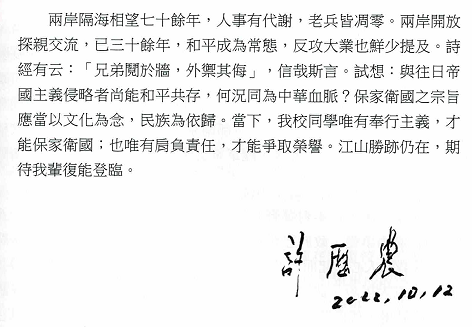 兩岸隔海相望七十餘年,人事有代謝,老兵皆凋零。兩岸開放
探親交流,已三十餘年,和平成為常態,反攻大業也鮮少提及。詩
經有云:「兄弟鬩於牆,外禦其侮」,信哉斯言。試想:與往日帝
國主義侵略者尚能和平共存,何況同為中華血脈?保家衛國之宗旨
應當以文化為念,民族為依歸。當下,我校同學唯有奉行主義,才
能保家衛國;也唯有肩負責任,才能爭取榮譽。江山勝跡仍在,期
待我輩復能登臨。
許歷農
2022.10.12